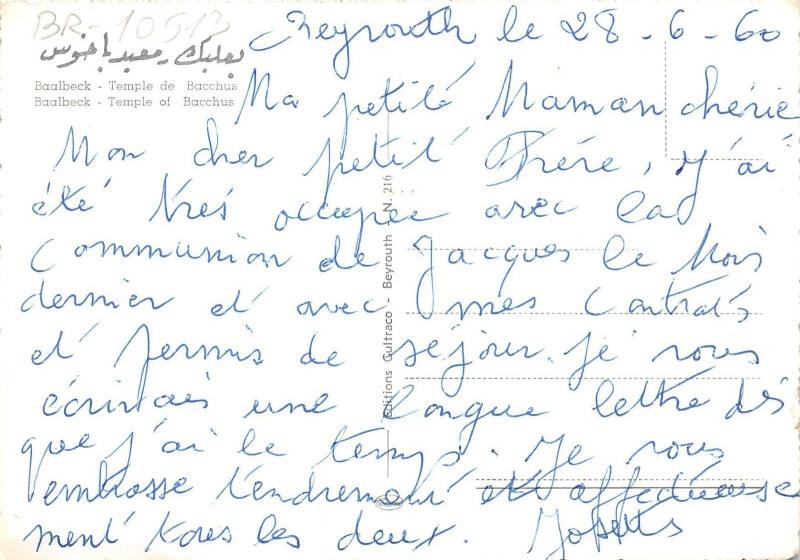 BR-10513
بعلبك - معبد باخوس
Baalbeck - Temple de Bacchus
Baalbeck - Temple of Bacchus
Editions Gultraco - Beyrouth - N. 216
Beyrouth le 28-6-60
Ma petite Maman chérie
Mon cher petit Frére, j'ai
été trés occupée avec la
Communion de Jacques le Mois
dernier et avec mes contrats
et permis de séjour. je vous
écrirais une longue lettre dés
que j'ai le temps. Je vous
embrasse tendrement et affectueuse
ment tous les deux.